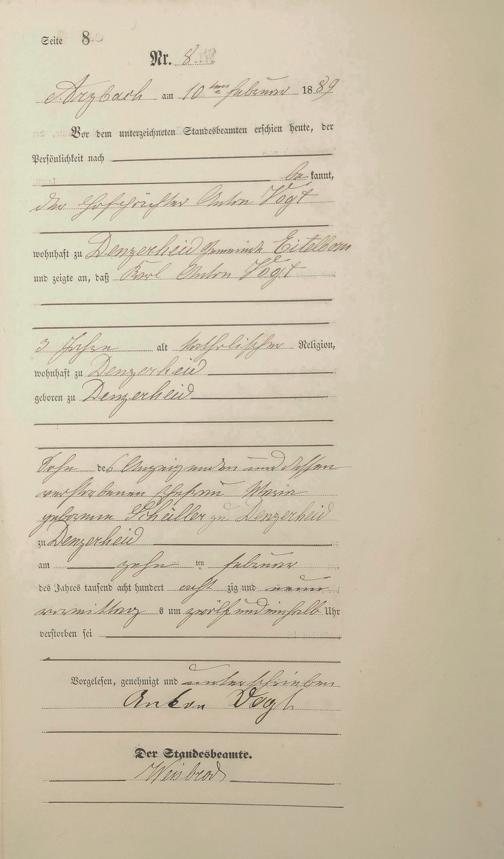 Seite 8
Nr. 8
Arzbach am 10ten Februar 1889
Vor dem unterzeichneten Standesbeamten erschien heute, der
Persönlichkeit nach
be kannt,
der Hofpächter Anton Vogt
wohnhaft zu Denzerheid Gemeinde Eitelborn
und zeigte an, daß Karl Anton Vogt
3 Jahre alt katholischer Religion,
wohnhaft zu Denzerheid
geboren zu Denzerheid
Sohn des Anzeigenden und dessen
verstorbenen Ehefrau Maria
geborene zu Denzerheid
zu Denzerheid
am zehn ten Februar
des Jahres tausend acht hundert acht zig und neun
vormittag s um zwölf und einhalb Uhr
verstorben sei
Vorgelesen, genehmigt und unterschrieben
Anton Vogt
Der Standesbeamte.
Weisbrod